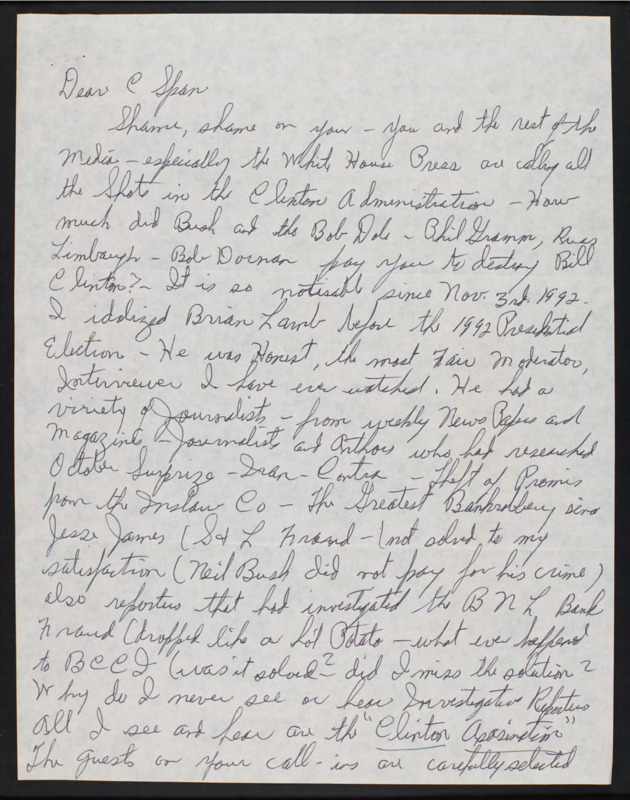 Dear C Span
Shame, shame on your - You and the rest of the
Media - especially the White House Press are calling all
the Shots in the Clinton Administration - How
much did Bush and the Bob Dole - Phil Gramm, Russ
Limbaugh - Bob Dornan pay you to destroy Bill
Clinton? - It is so noticable since Nov. 3rd 1992.
I idolized Brian Lamb before the 1992 Presidential
Election - He was Honest, the most Fair Moderator,
Interviewer I have ever watched. He had a
variety of Journalists - from weekly News Papers and
Magazines - Journalists and Authors who had researched
October Surprize - Iran - Contra - Theft of Promis
from the Inslaw Co - The Greatest Bankrobbery since
Jesse James (S & L Fraud - (not solved to my
satisfaction (Neil Bush did not pay for his crime)
also reporters that had investigated the B N L Bank
Fraud (dropped like a hot Potato - what ever happened
to BCCI (was it solved? did I miss the solution?
Why do I never see or hear Investigative Reporters
All I see and hear are the "Clinton Asasination"
The guests on your call-ins are carefully selected